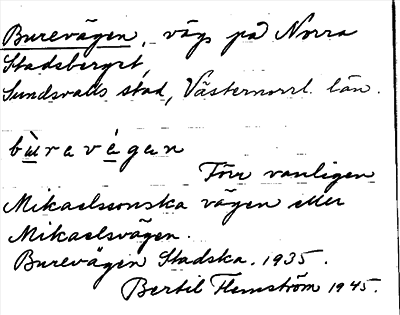 Burevägen, väg på Norra
Stadsberget,
Sundsvalls stad, Västernorrl. län.
bùravégan
Förr vanligen
Mikaelssonska vägen eller
Mikaelsvägen.
Burevägen Stadska. 1935.
Bertil Flemström 1945.